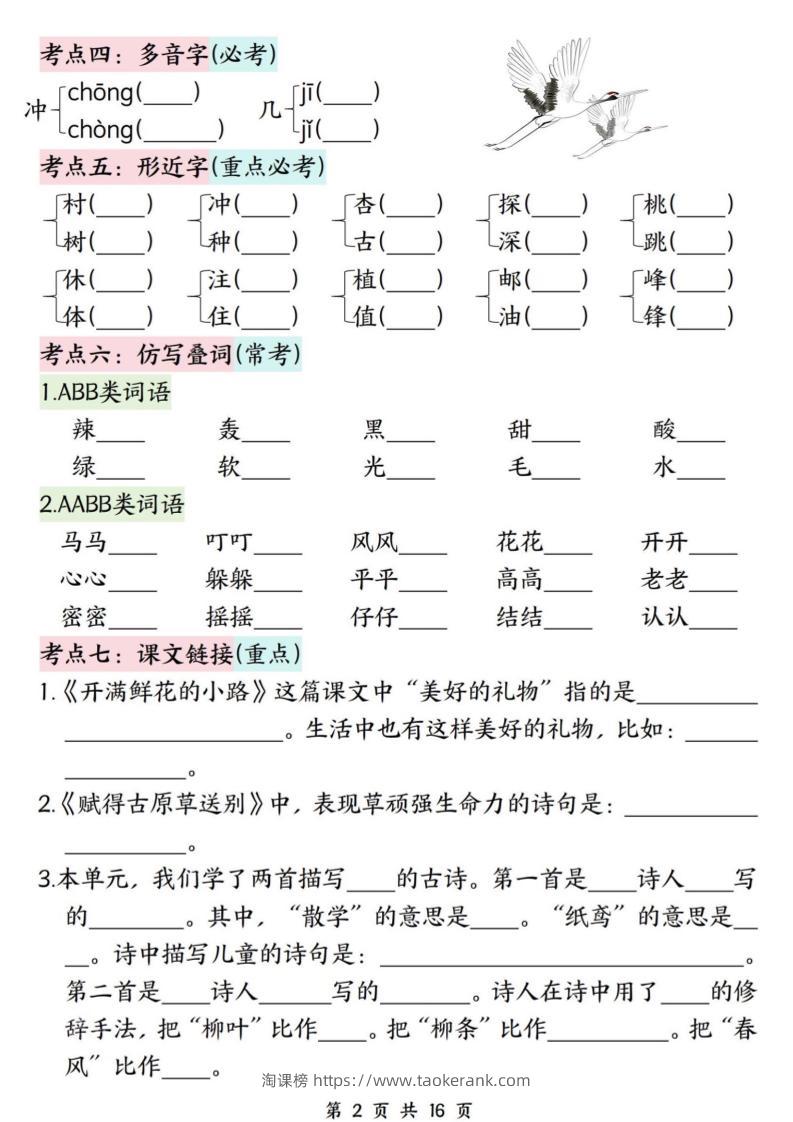 考点四：多音字(必考)
冲 chōng(____) 几 jī(____)
chòng(______) jǐ(____)
考点五：形近字(重点必考)
村(____) 冲(____) 杏(____) 探(____) 桃(____)
树(____) 种(____) 古(____) 深(____) 跳(____)
休(____) 注(____) 植(____) 邮(____) 峰(____)
体(____) 住(____) 值(____) 油(____) 锋(____)
考点六：仿写叠词(常考)
1.ABB类词语
辣____ 轰____ 黑____ 甜____ 酸____
绿____ 软____ 光____ 毛____ 水____
2.AABB类词语
马马____ 叮叮____ 风风____ 花花____ 开开____
心心____ 躲躲____ 平平____ 高高____ 老老____
密密____ 摇摇____ 仔仔____ 结结____ 认认____
考点七：课文链接(重点)
1.《开满鲜花的小路》这篇课文中“美好的礼物”指的是__________
__________________。生活中也有这样美好的礼物，比如：______
__________。
2.《赋得古原草送别》中，表现草顽强生命力的诗句是：___________
__________。
3.本单元，我们学了两首描写____的古诗。第一首是____诗人____写
的________。其中，“散学”的意思是____。“纸鸢”的意思是__
__。诗中描写儿童的诗句是：______________________________。
第二首是____诗人______写的________。诗人在诗中用了____的修
辞手法，把“柳叶”比作____。把“柳条”比作__________。把“春
风”比作____。
淘课榜 https://www.taokerank.com
第 2 页 共 16 页